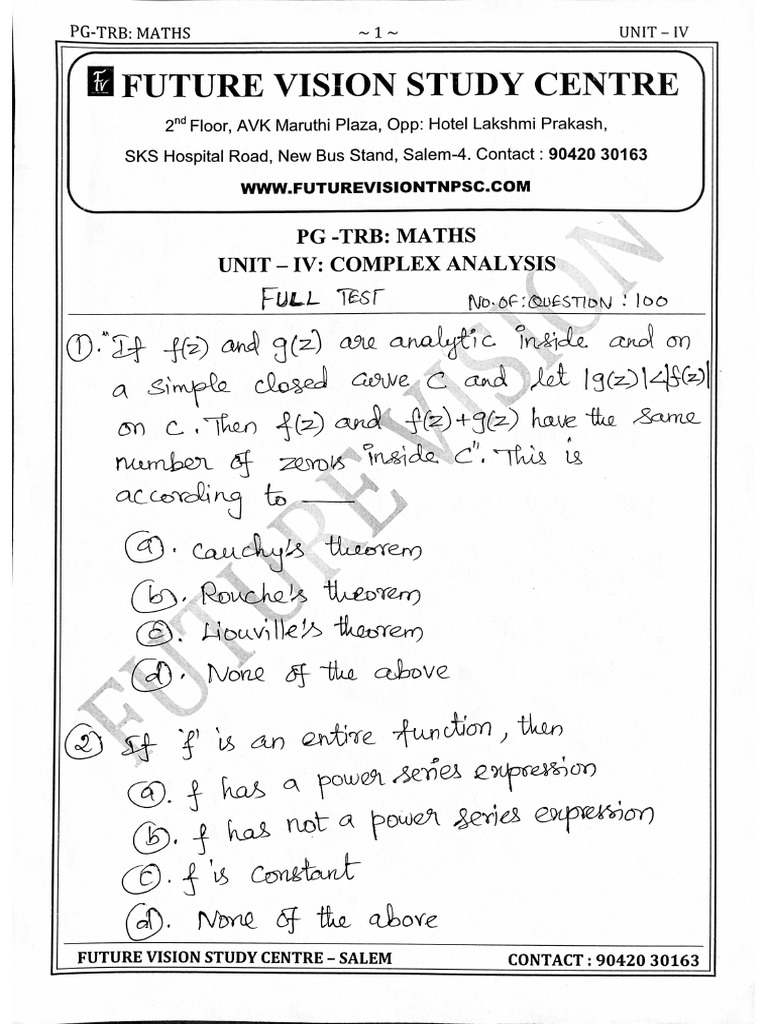 PG-TRB: MATHS ~ 1 ~ UNIT – IV
FV FUTURE VISION STUDY CENTRE
2nd Floor, AVK Maruthi Plaza, Opp: Hotel Lakshmi Prakash,
SKS Hospital Road, New Bus Stand, Salem-4. Contact : 90420 30163
WWW.FUTUREVISIONTNPSC.COM
PG -TRB: MATHS
UNIT – IV: COMPLEX ANALYSIS
FULL TEST NO.OF:QUESTION : 100
①. "If f(z) and g(z) are analytic inside and on
a simple closed curve C and let |g(z)|<|f(z)|
on C. Then f(z) and f(z)+g(z) have the same
number of zerois inside C". This is
according to ___
(a). Cauchy's theorem
(b). Rouche's theorem
(c). Liouville's theorem
(d). None of the above
② If 'f' is an entire function, then
(a). f has a power series expression
(b). f has not a power series expression
(c). f is constant
(d). None of the above
FUTURE VISION STUDY CENTRE – SALEM CONTACT : 90420 30163
FUTURE VISION